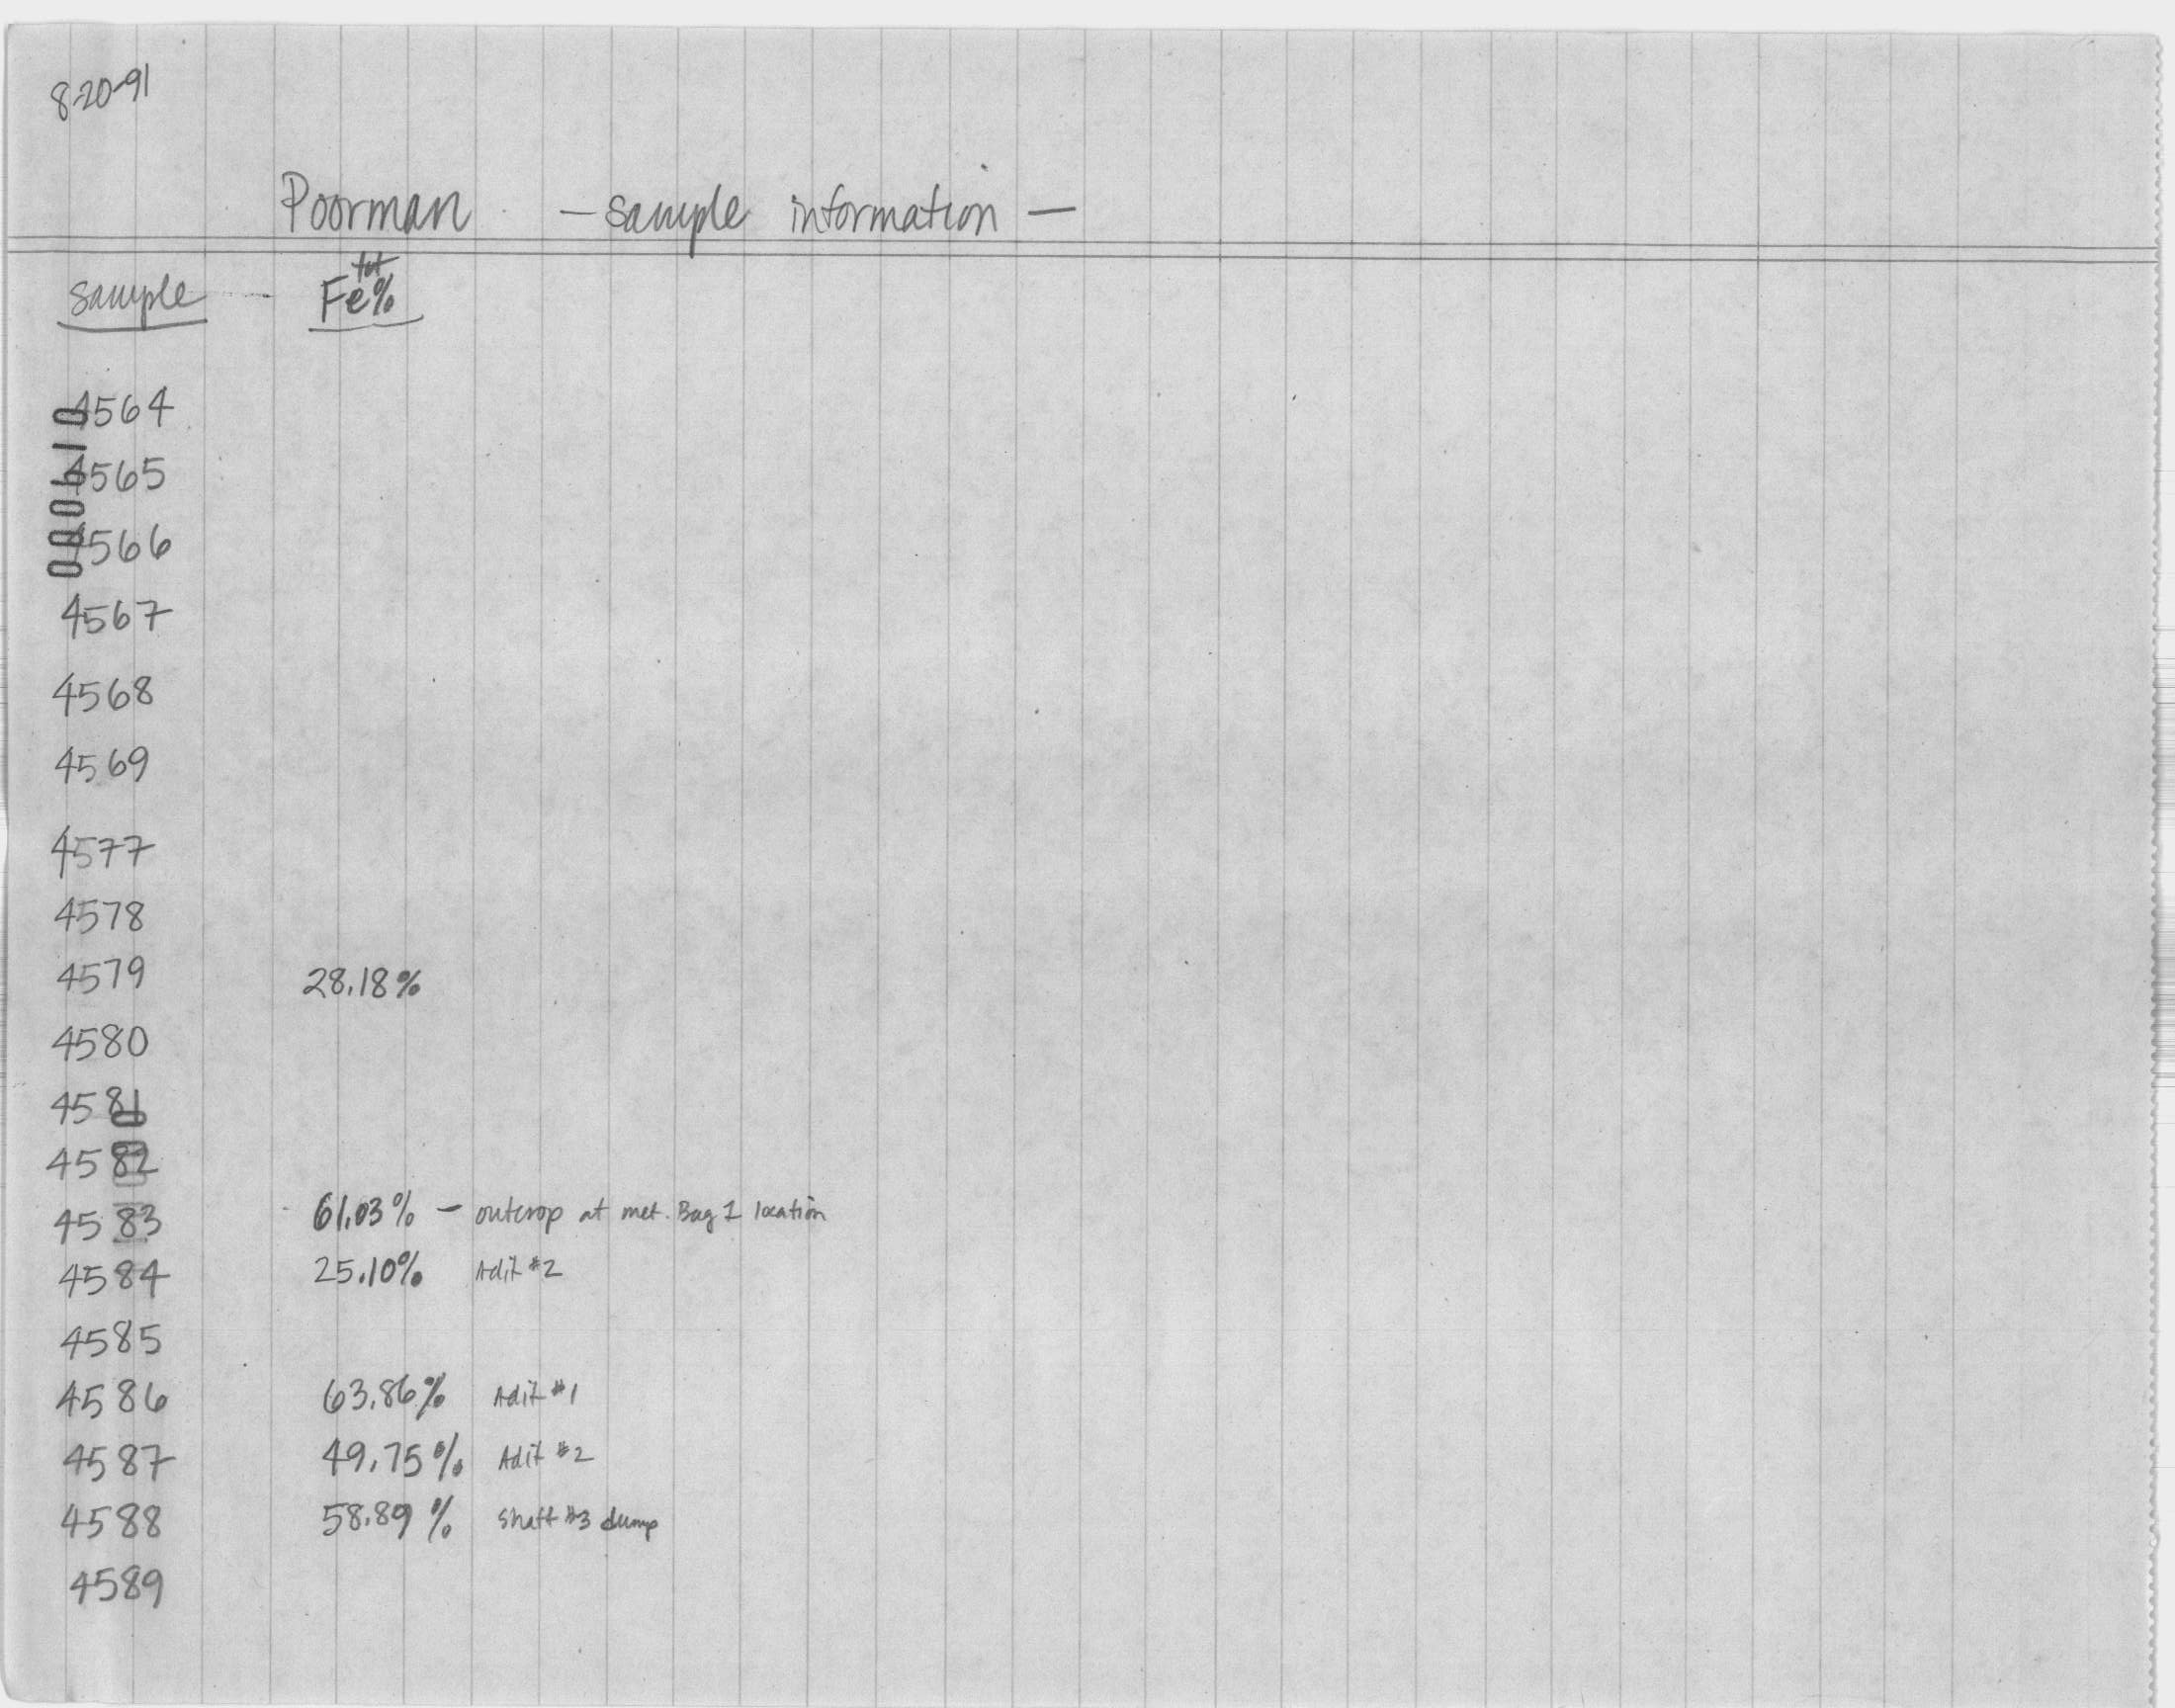 8-20-91
Poorman - sample information -
sample Fe tot %
4564
4565
4566
4567
4568
4569
4577
4578
4579 28.18%
4580
4581
4582
4583 61.03% - outcrop at met. Bag 1 location
4584 25.10% Adit #2
4585
4586 63.86% Adit #1
4587 49.75% Adit #2
4588 58.89% Shaft #3 dump
4589